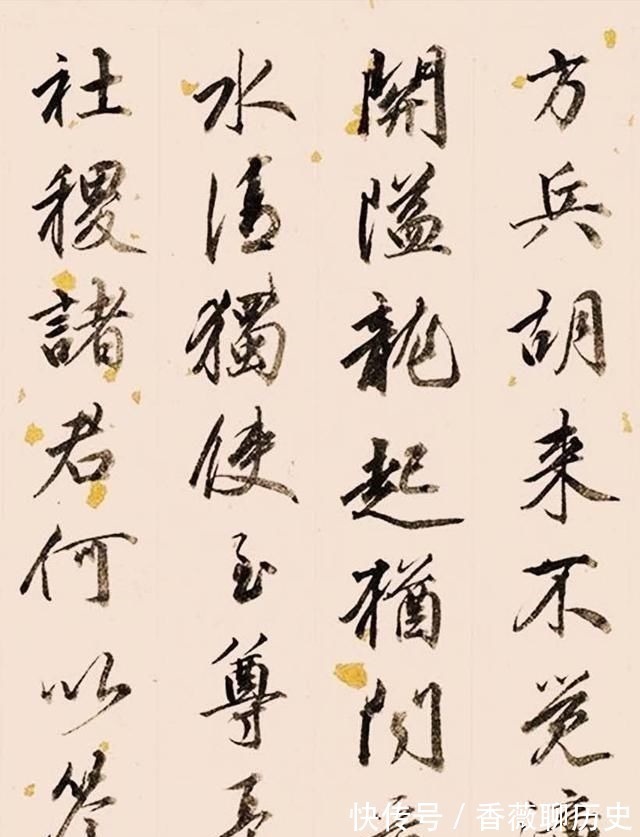 方兵胡来不觉
關隘龍起猶聞
水清獨使至尊
社稷諸君何以答
快传号 / 香薇聊历史